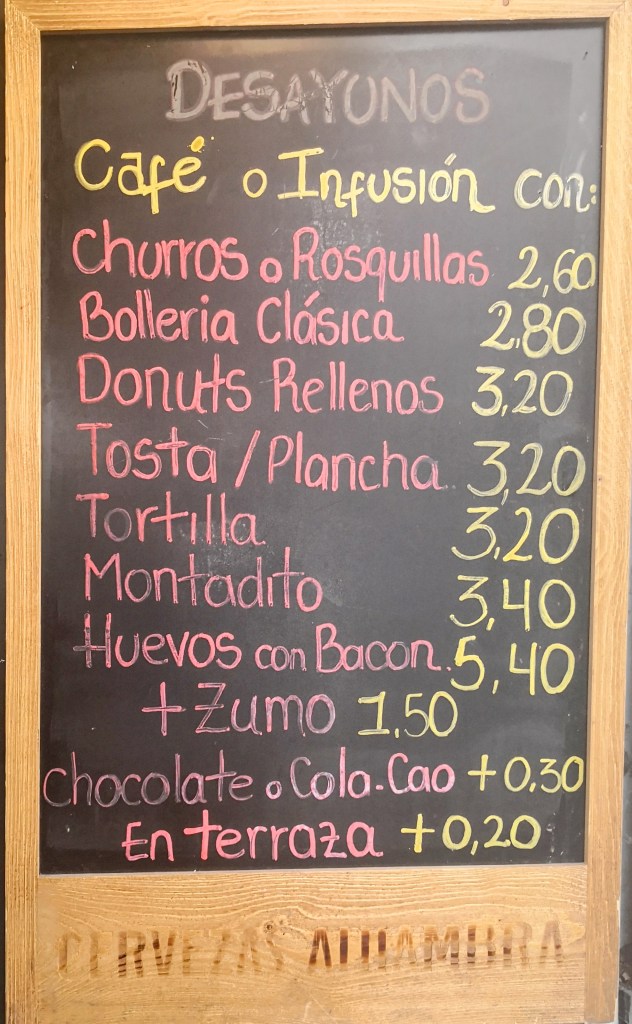 DESAYUNOS
Café o Infusión con:
Churros o Rosquillas 2,60
Bolleria Clásica 2.80
Donuts Rellenos 3,20
Tosta / Plancha 3,20
Tortilla 3,20
Montadito 3,40
Huevos con Bacon 5,40
+ Zumo 1,50
Chocolate o Cola-Cao +0,30
En terraza +0,20
CERVEZAS ALHAMBRA